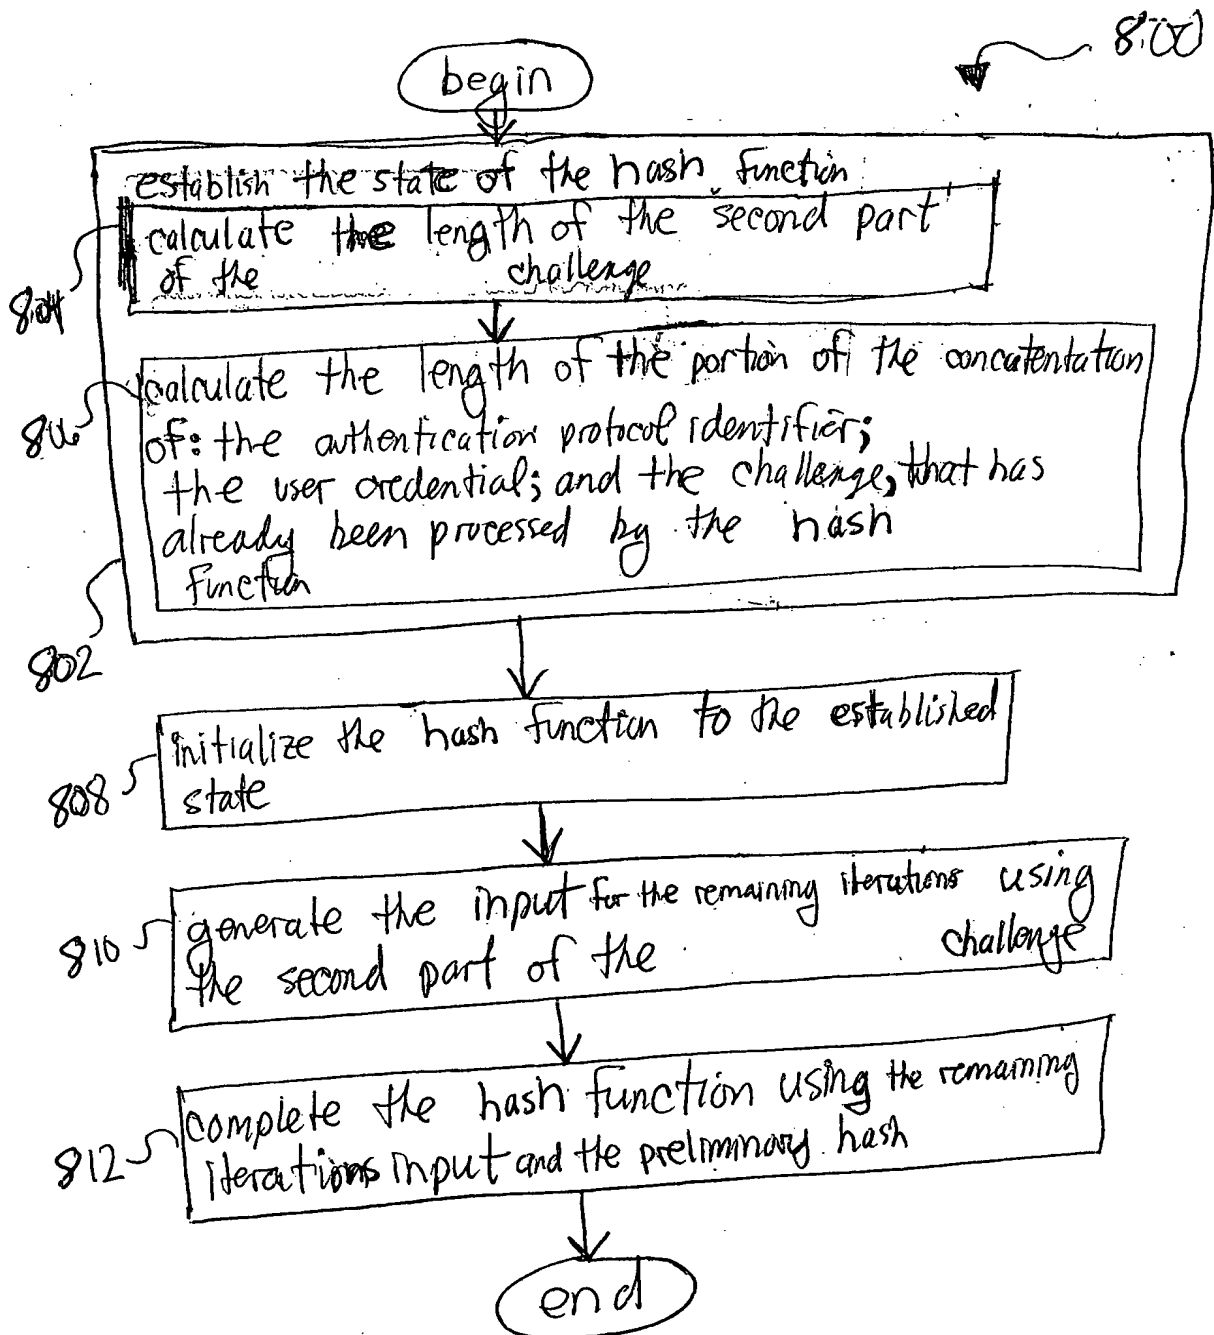 800
begin
establish the state of the hash function
calculate the length of the second part
of the challenge
804
calculate the length of the portion of the concatentation
806
of: the authentication protocol identifier;
the user credential; and the challenge, that has
already been processed by the hash
function
802
initialize the hash function to the established
state
808
generate the input for the remaining iterations using
the second part of the challenge
810
complete the hash function using the remaining
iterations input and the preliminary hash
812
end